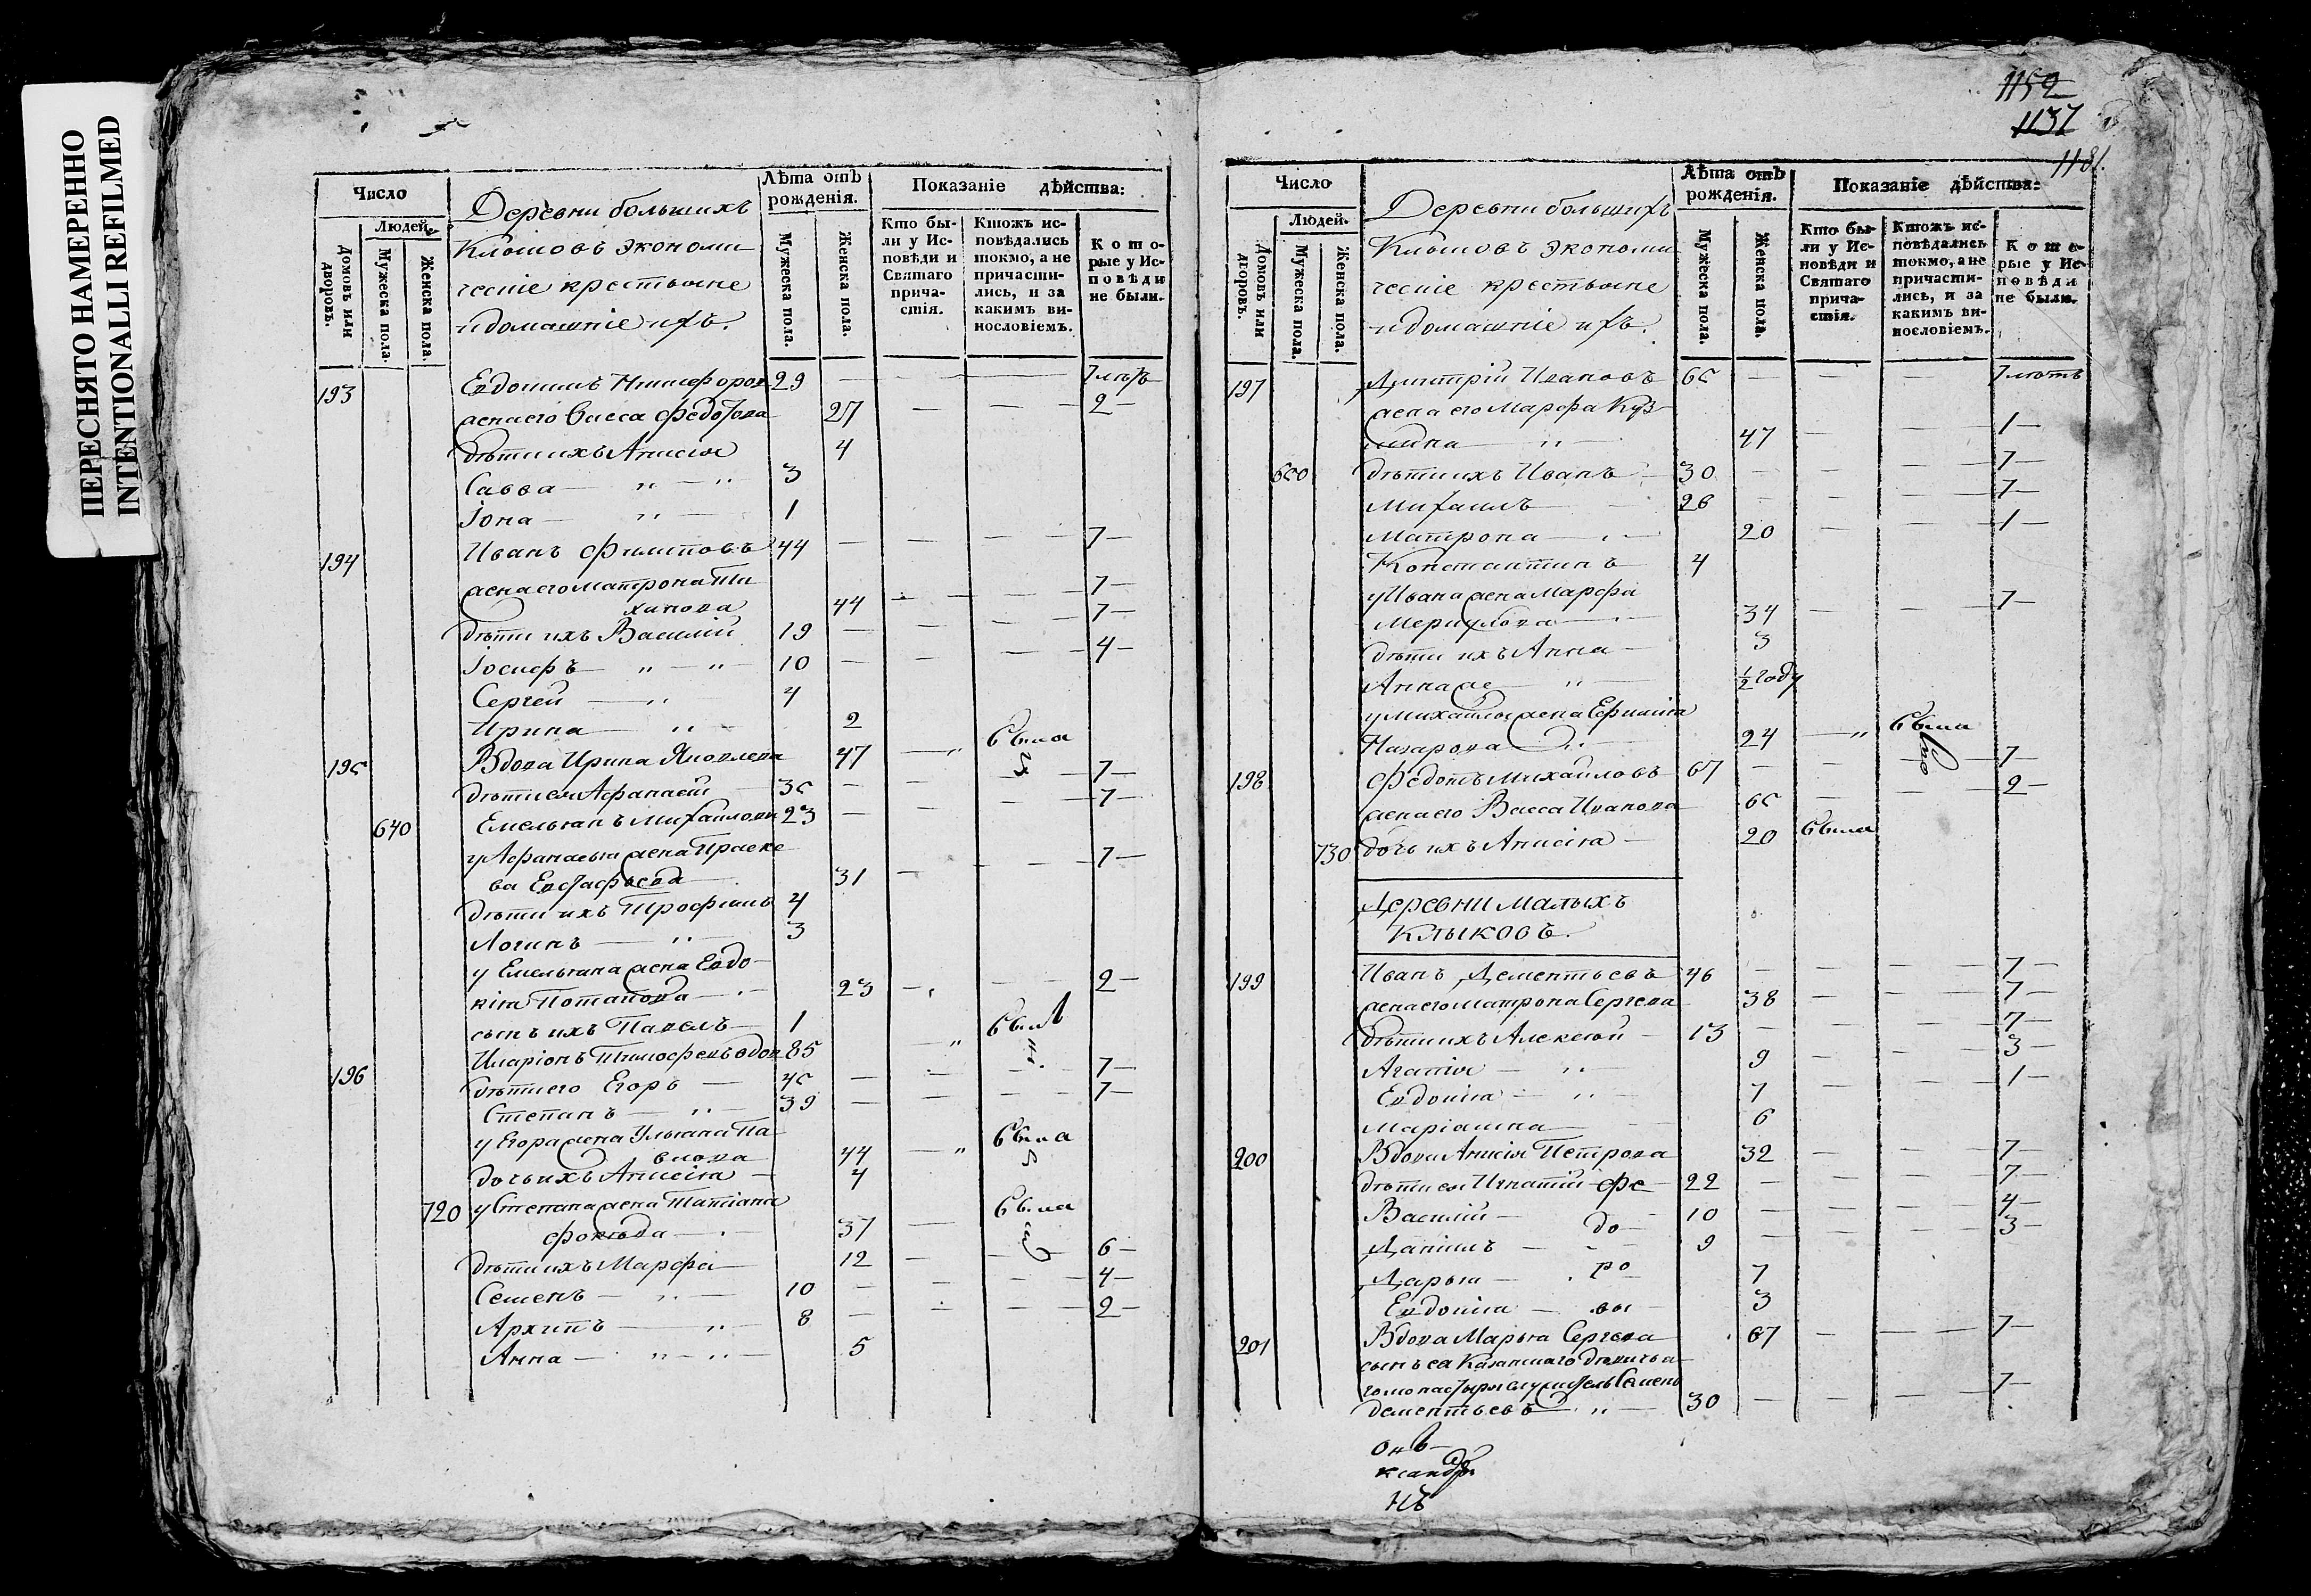 ПЕРЕСНЯТО НАМЕРЕННО
INTENTIONALLI REFILMED
Число
Людей.
Домовъ или дворовъ.
Мужеска пола.
Женска пола.
Деревни большихъ
Клыковъ экономи
ческіе крестьяне
и домашніе ихъ.
Лѣта отъ рожденія.
Мужеска пола.
Женска пола.
Показаніе дѣйства:
Кто бы-
ли у Ис-
повѣди и
Святаго
прича-
стія.
Ктожъ ис-
повѣдались
токмо, а не
причасти-
лись, и за
какимъ ви-
нословіемъ.
Кото-
рые у Ис-
повѣди
не были.
193 Евдокимъ Никифоров 29 — — — 7 лѣтъ
жена его Васса Федотова 27 — — 2 —
дѣти ихъ Анисія 4
Савва — 3
Іона — 1
194 Иванъ Филиповъ 44 — — — 7 —
жена его Матрона Ти
хинова 44 — — — 7 —
дѣти ихъ Василій 19 — — — 7 —
Іосифъ — 10 — — — 4 —
Сергей — 4
Ирина — 2
195 Вдова Ирина Яковлева 47 — была
дѣти ея Афанасій 35 — — — 7 —
640 Емельянъ Михайлови 23 — — — 7 —
у Афанасья жена Праске
ва Евстафьева 31 — — — 7 —
дѣти ихъ Трофимъ 4
Логинъ — 3
у Емельяна жена Евдо-
кія Потапова — 23 — — 2 —
сынъ ихъ Павелъ — 1
196 Иларіонъ Тимофеевъ вдов 85 — былъ
дѣти его Егоръ — 45 — — — 7 —
Степанъ — 39 — — — 7 —
у Егора жена Ульяна Па
влова 44 — была
дочь ихъ Анисія — 4
720 у Степана жена Татіана
Фокѣева — 37 — была
дѣти ихъ Марфа — 12 — — 6 —
Семенъ — 10 — — — 4 —
Архипъ — 8 — — — 2 —
Анна — 5
1152
1137
1181.
Число
Людей.
Домовъ или дворовъ.
Мужеска пола.
Женска пола.
Деревни большихъ
Клыковъ экономи
ческіе крестьяне
и домашніе ихъ.
Лѣта отъ рожденія.
Мужеска пола.
Женска пола.
Показаніе дѣйства:
Кто бы-
ли у Ис-
повѣди и
Святаго
прича-
стія.
Ктожъ ис-
повѣдались
токмо, а не
причасти-
лись, и за
какимъ ви-
нословіемъ.
Кото-
рые у Ис-
повѣди
не были.
197 Дмитрій Ивановъ 65 — — — 7 лѣтъ
жена его Марфа Куз-
мина — 47 — — — 1 —
650 дѣти ихъ Иванъ 30 — — — 7 —
Михаилъ 26 — — — 7 —
Матрона — 20 — — — 1 —
Константинъ 4
у Ивана жена Марфа
Меркулова — 34 — — 7 —
дѣти ихъ Анна — 3
Анна же — ½ году
у Михайлы жена Ефимія
Назарова — 24 — была
198 Федотъ Михайловъ 67 — — — 7 —
жена его Васса Иванова 65 — — 2 —
730 дочь ихъ Анисія — 20 была
Деревни Малыхъ
Клыковъ.
199 Иванъ Дементьевъ 46 — — — 7 —
жена его Матрона Сергева 38 — — — 7 —
дѣти ихъ Алексѣй 13 — — — 7 —
Агапія — 9 — — — 3 —
Евдокіа — 7 — — — 1 —
Маріамна — 6
200 Вдова Анисія Петрова 32 — — — 7 —
дѣти ея Игнатій Фе 22 — — — 7 —
Василій — до 10 — — — 4 —
Даніилъ — 9 — — — 3 —
Дарья — ро 7
Евдокіа — вы 3
201 Вдова Марья Сергева 67 — — — 7 —
сынъ ея Казанскаго дѣвичьа
го монастыря служитель Семенъ
дементьевъ — 30 — — — 7 —
онъ
ксандръ
нъ